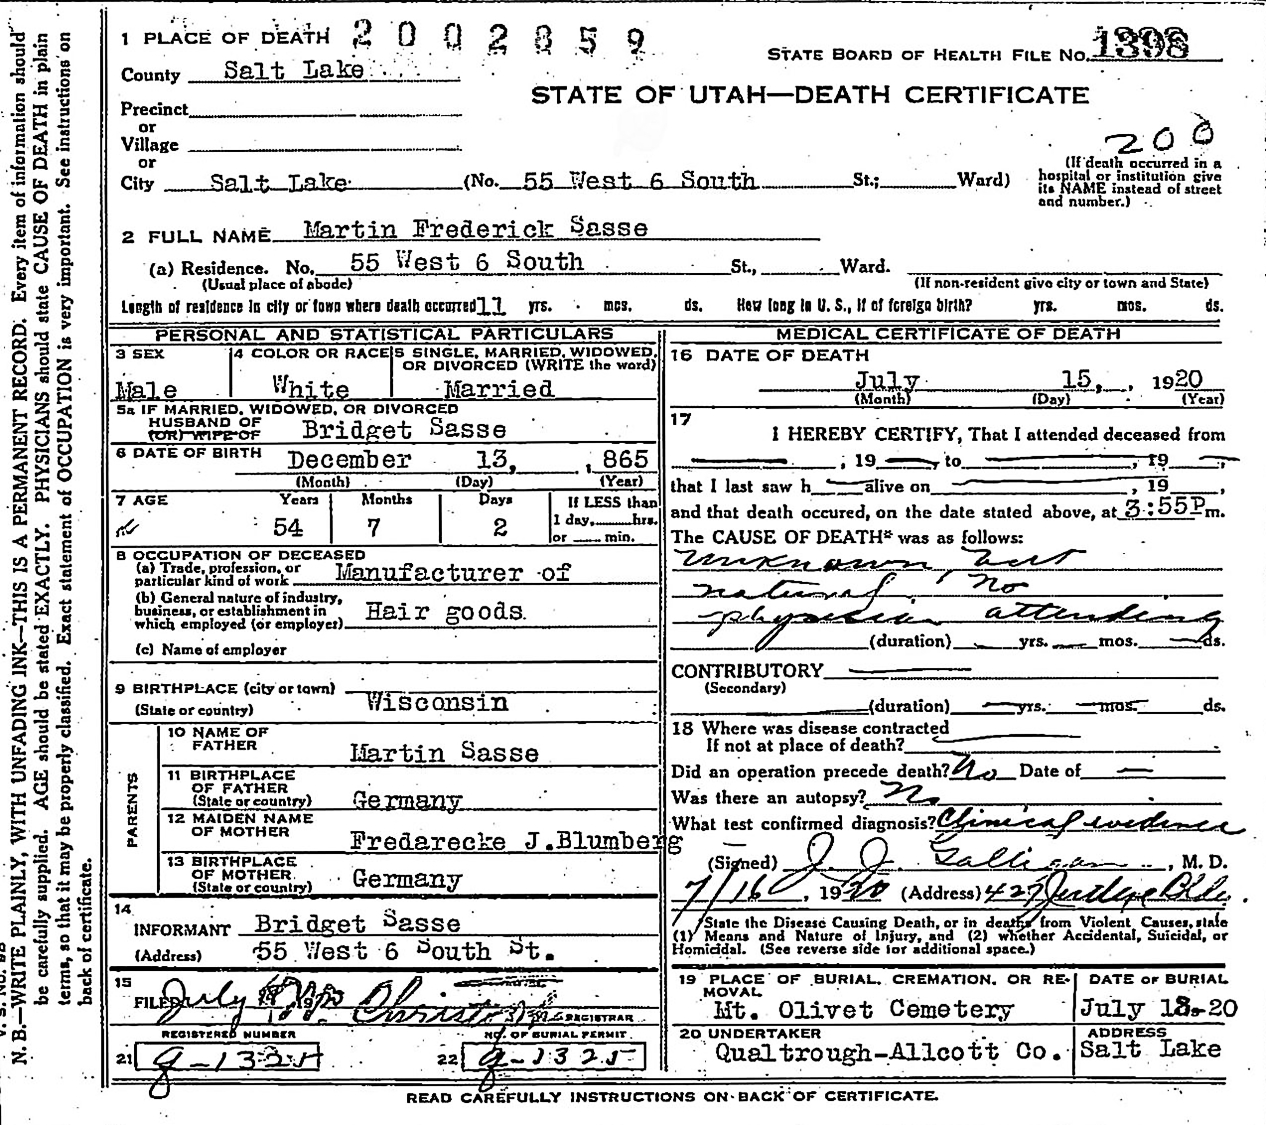 1 PLACE OF DEATH 2002859
STATE BOARD OF HEALTH FILE No. 1398
County Salt Lake
STATE OF UTAH—DEATH CERTIFICATE
Precinct
or
Village
or
City Salt Lake (No. 55 West 6 South St.; Ward)
200
(If death occurred in a
hospital or institution give
its NAME instead of street
and number.)
2 FULL NAME Martin Frederick Sasse
(a) Residence. No. 55 West 6 South St., Ward.
(Usual place of abode) (If non-resident give city or town and State)
Length of residence in city or town where death occurred 11 yrs. mos. ds. How long in U. S., if of foreign birth? yrs. mos. ds.
PERSONAL AND STATISTICAL PARTICULARS
3 SEX 4 COLOR OR RACE 5 SINGLE, MARRIED, WIDOWED,
OR DIVORCED (WRITE the word)
Male White Married
5a IF MARRIED, WIDOWED, OR DIVORCED
HUSBAND OF
(OR) WIFE OF Bridget Sasse
6 DATE OF BIRTH December 13, , 865
(Month) (Day) (Year)
7 AGE Years Months Days If LESS than
54 7 2 1 day, hrs.
or min.
8 OCCUPATION OF DECEASED
(a) Trade, profession, or
particular kind of work Manufacturer of
(b) General nature of industry,
business, or establishment in
which employed (or employer) Hair goods
(c) Name of employer
9 BIRTHPLACE (city or town)
(State or country) Wisconsin
PARENTS
10 NAME OF
FATHER Martin Sasse
11 BIRTHPLACE
OF FATHER
(State or country) Germany
12 MAIDEN NAME
OF MOTHER Fredarecke J.Blumberg
13 BIRTHPLACE
OF MOTHER
(State or country) Germany
14
INFORMANT Bridget Sasse
(Address) 55 West 6 South St.
15
FILED July 19 REGISTRAR
REGISTERED NUMBER NO. OF BURIAL PERMIT
21 g-1325 22 g-1325
MEDICAL CERTIFICATE OF DEATH
16 DATE OF DEATH
July 15, , 1920
(Month) (Day) (Year)
17
I HEREBY CERTIFY, That I attended deceased from
, 19 , to , 19 ,
that I last saw h alive on , 19 ,
and that death occured, on the date stated above, at 3:55P m.
The CAUSE OF DEATH* was as follows:
Unknown, but
natural. No
physician attending
(duration) yrs. mos. ds.
CONTRIBUTORY
(Secondary)
(duration) yrs. mos. ds.
18 Where was disease contracted
If not at place of death?
Did an operation precede death? No Date of
Was there an autopsy? No
What test confirmed diagnosis? Clinical evidence
(Signed) J. J. Galligan , M. D.
7/16 , 1920 (Address) 427
*State the Disease Causing Death, or in deaths from Violent Causes, state
(1) Means and Nature of Injury, and (2) whether Accidental, Suicidal, or
Homicidal. (See reverse side for additional space.)
19 PLACE OF BURIAL, CREMATION, OR RE-
MOVAL DATE OF BURIAL
Mt. Olivet Cemetery July 18-20
20 UNDERTAKER ADDRESS
Qualtrough-Allcott Co. Salt Lake
READ CAREFULLY INSTRUCTIONS ON BACK OF CERTIFICATE.
N. B.—WRITE PLAINLY, WITH UNFADING INK—THIS IS A PERMANENT RECORD. Every item of information should
be carefully supplied. AGE should be stated EXACTLY. PHYSICIANS should state CAUSE OF DEATH in plain
terms, so that it may be properly classified. Exact statement of OCCUPATION is very important. See instructions on
back of certificate.